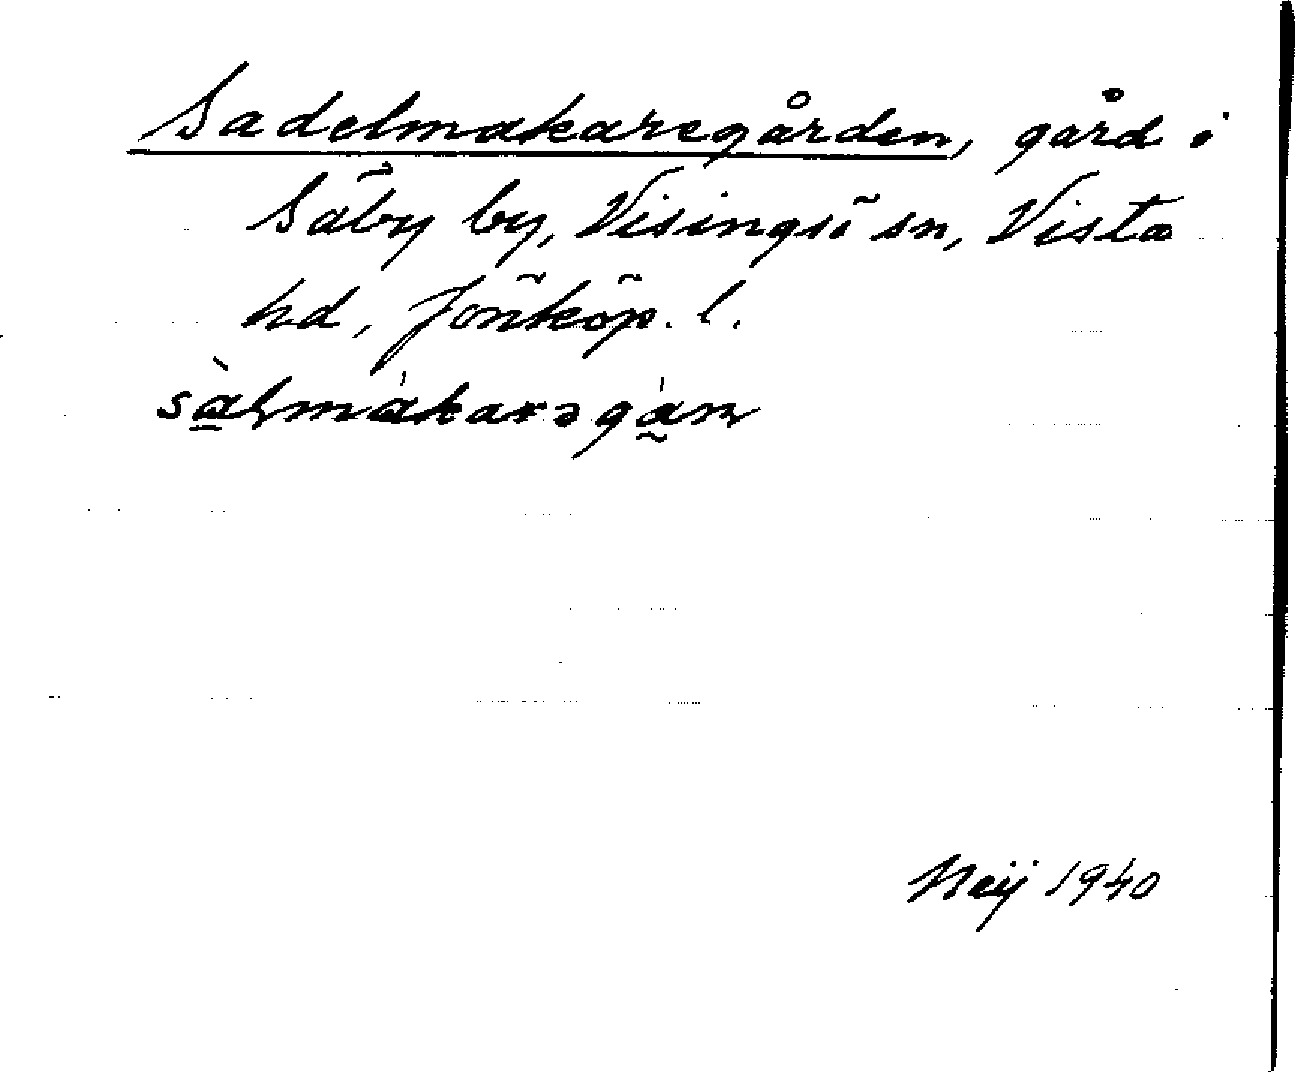 Sadelmakaregården, gård i
Säby by, Visingsö sn, Vista
hd, Jönköp. l.
Neij 1940